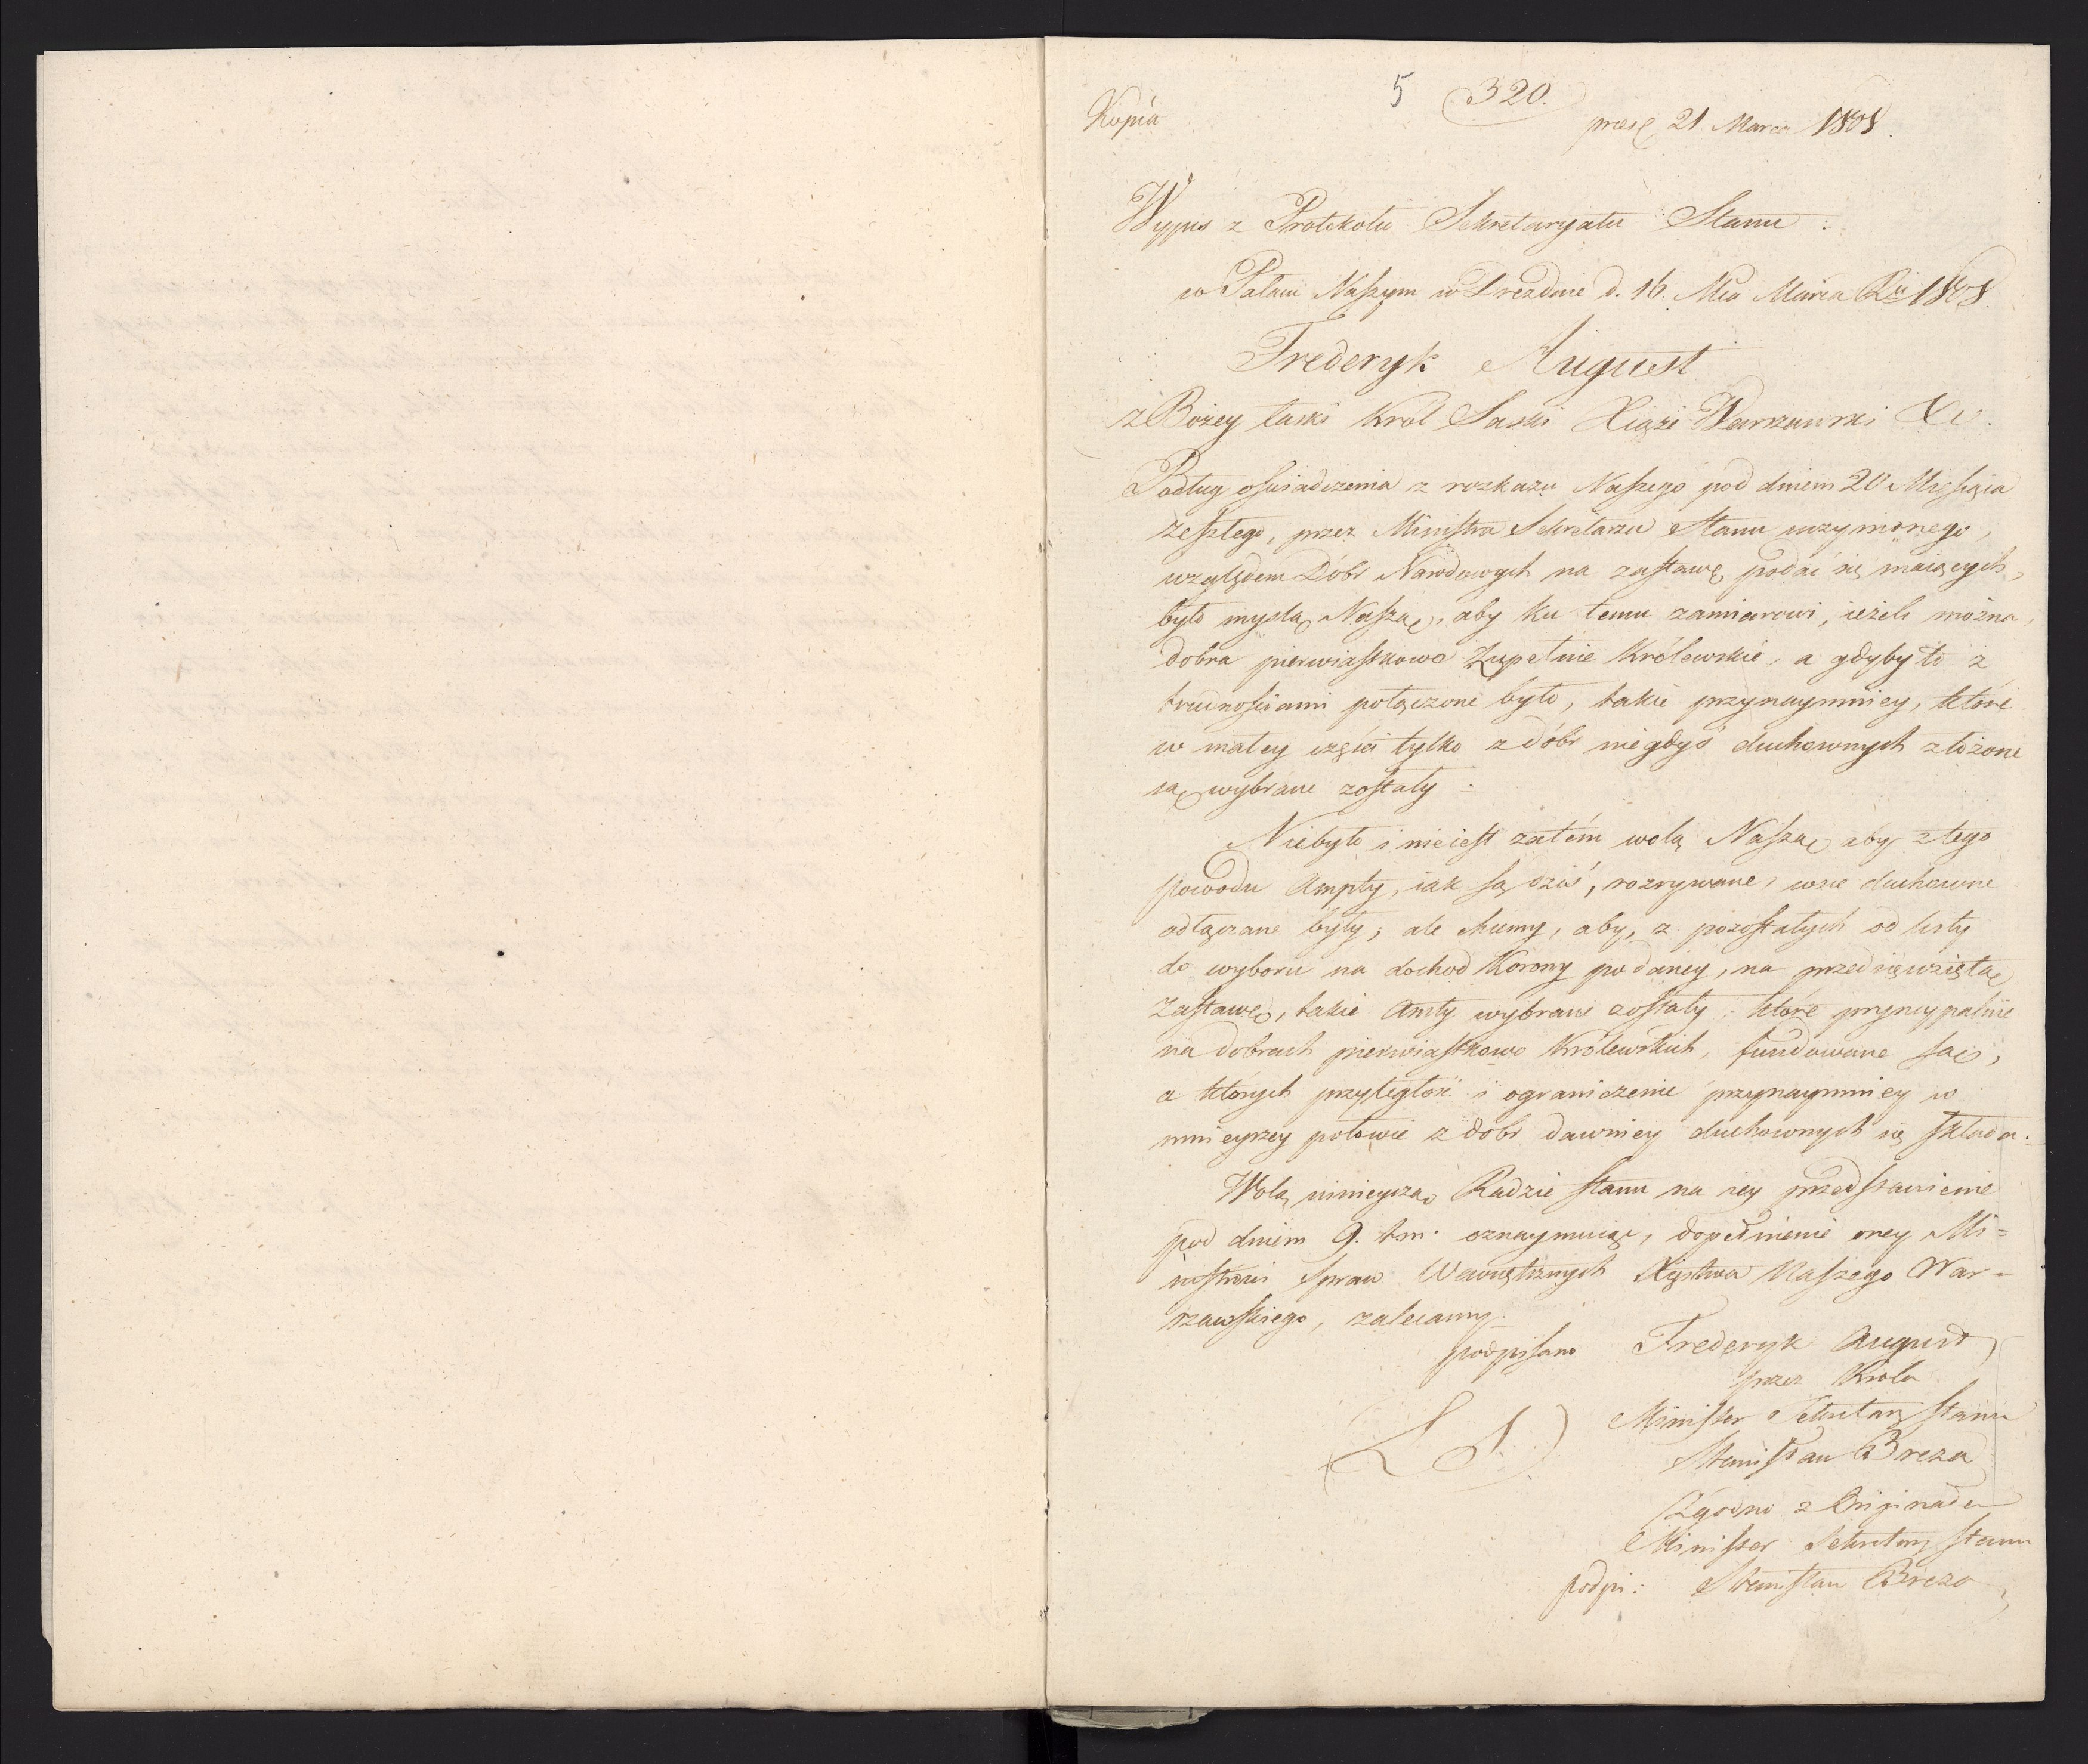 5 320.
Kopia
pres 21 Marca 1808.
Wypis z Protokołu Sekretaryatu Stanu :
w Pałacu Naszym w Dreźdnie d. 16. Mca Marca Ru 1808.
Frederyk August
z Bożey łaski Król Saski Xiąże Warszawski &c.
Podług oświadczenia z rozkazu Naszego pod dniem 20 Miesiąca
zeszłego, przez Ministra Sekretarza Stanu uczynionego,
względem Dóbr Narodowych na zastawę podać się maiących,
było myslą Naszą, aby ku temu zamiarowi, ieżeli można,
dobra pierwiastkowo Zupełnie Królewskie, a gdyby to z
trudnościami połączone było, takie przynaymniey, które
w małey części tylko z dóbr niegdyś duchownych złożone
są wybrane zostały :
Niebyło i nieiest zatém wolą Naszą aby z tego
powodu Ampty, iak są dziś, rozrywane, wsie duchowne
odłączane były; ale chcemy, aby, z pozostałych od listy
do wyboru na dochod Korony podaney, na przedsięwziętą
Zastawę, takie Amty wybrane zostały, które pryncypalnie
na dobrach pierwiastkowo Królewskich, fundowane są,
a których przyległość i ograniczenie przynaymniey w
mnieyszey połowie z dobr dawniey duchownych się składa.
Wolą ninieyszą Radzie stanu na iey przedstawienie
pod dniem 9. t.m. oznaymuiąc, dopełnienie oney Mi=
nistrowi Spraw Wewnętrznych Xięstwa Naszego War=
szawskiego, zalecamy.
podpisano Frederyk August
przez Króla
Minister Sekretarz Stanu
(L S) Stanisław Breza
Zgodno z Oryginałem
Minister Sekretarz Stanu
podpi: Stanisław Breza